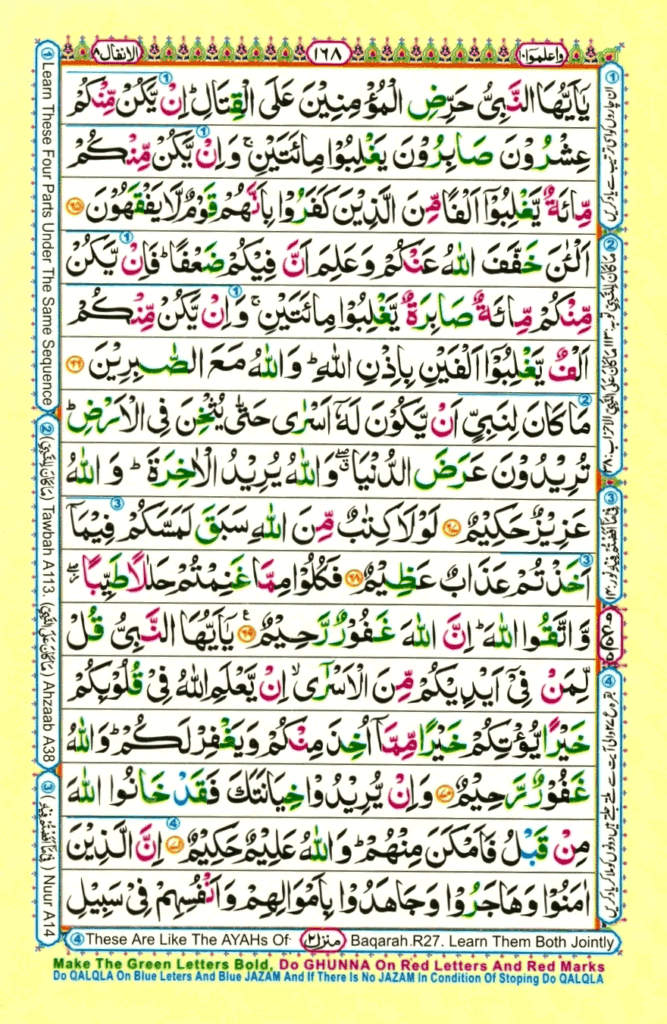 الانفال ۸
۱۶۸
واعلموا ۱۰
یٰۤاَیُّهَا النَّبِیُّ حَرِّضِ الْمُؤْمِنِیْنَ عَلَی الْقِتَالِ ؕ اِنْ یَّكُنْ مِّنْكُمْ
عِشْرُوْنَ صَابِرُوْنَ یَغْلِبُوْا مِائَتَیْنِ ۚ وَ اِنْ یَّكُنْ مِّنْكُمْ
مِّائَةٌ یَّغْلِبُوْۤا اَلْفًا مِّنَ الَّذِیْنَ كَفَرُوْا بِاَنَّهُمْ قَوْمٌ لَّا یَفْقَهُوْنَ ۶۵
اَلْـٰٔنَ خَفَّفَ اللّٰهُ عَنْكُمْ وَ عَلِمَ اَنَّ فِیْكُمْ ضَعْفًا ؕ فَاِنْ یَّكُنْ
مِّنْكُمْ مِّائَةٌ صَابِرَةٌ یَّغْلِبُوْا مِائَتَیْنِ ۚ وَ اِنْ یَّكُنْ مِّنْكُمْ
اَلْفٌ یَّغْلِبُوْۤا اَلْفَیْنِ بِاِذْنِ اللّٰهِ ؕ وَ اللّٰهُ مَعَ الصّٰبِرِیْنَ ۶۶
مَا كَانَ لِنَبِیٍّ اَنْ یَّكُوْنَ لَهٗۤ اَسْرٰی حَتّٰی یُثْخِنَ فِی الْاَرْضِ ؕ
تُرِیْدُوْنَ عَرَضَ الدُّنْیَا ۖۗ وَ اللّٰهُ یُرِیْدُ الْاٰخِرَةَ ؕ وَ اللّٰهُ
عَزِیْزٌ حَكِیْمٌ ۶۷ لَوْ لَا كِتٰبٌ مِّنَ اللّٰهِ سَبَقَ لَمَسَّكُمْ فِیْمَاۤ
اَخَذْتُمْ عَذَابٌ عَظِیْمٌ ۶۸ فَكُلُوْا مِمَّا غَنِمْتُمْ حَلٰلًا طَیِّبًا ۖؗ
وَّ اتَّقُوا اللّٰهَ ؕ اِنَّ اللّٰهَ غَفُوْرٌ رَّحِیْمٌ ۶۹ یٰۤاَیُّهَا النَّبِیُّ قُلْ
لِّمَنْ فِیْۤ اَیْدِیْكُمْ مِّنَ الْاَسْرٰۤی ۙ اِنْ یَّعْلَمِ اللّٰهُ فِیْ قُلُوْبِكُمْ
خَیْرًا یُّؤْتِكُمْ خَیْرًا مِّمَّاۤ اُخِذَ مِنْكُمْ وَ یَغْفِرْ لَكُمْ ؕ وَ اللّٰهُ
غَفُوْرٌ رَّحِیْمٌ ۷۰ وَ اِنْ یُّرِیْدُوْا خِیَانَتَكَ فَقَدْ خَانُوا اللّٰهَ
مِنْ قَبْلُ فَاَمْكَنَ مِنْهُمْ ؕ وَ اللّٰهُ عَلِیْمٌ حَكِیْمٌ ۷۱ اِنَّ الَّذِیْنَ
اٰمَنُوْا وَ هَاجَرُوْا وَ جَاهَدُوْا بِاَمْوَالِهِمْ وَ اَنْفُسِهِمْ فِیْ سَبِیْلِ
① Learn These Four Parts Under The Same Sequence
② (مَا كَانَ لِلنَّبِیِّ) Tawbah A113. (مَا كَانَ عَلَی النَّبِیِّ) Ahzaab A38
③ Nuur A14
④ These Are Like The AYAHs Of منزل ۲ Baqarah.R27. Learn Them Both Jointly
Make The Green Letters Bold, Do GHUNNA On Red Letters And Red Marks
Do QALQLA On Blue Leters And Blue JAZAM And If There Is No JAZAM In Condition Of Stoping Do QALQLA